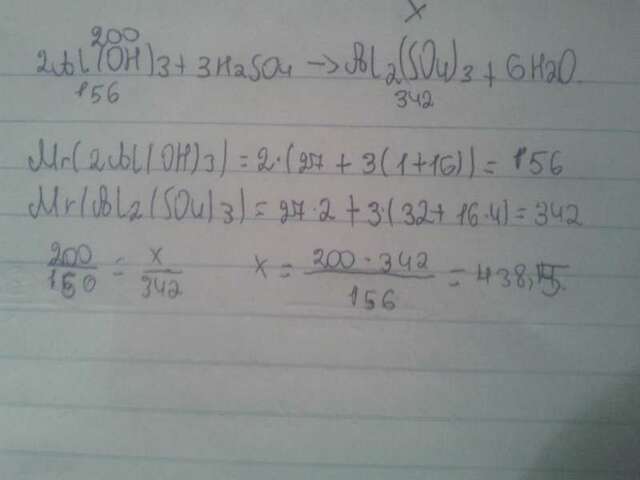 x
200
2Al(OH)3 + 3H2SO4 -> Al2(SO4)3 + 6H2O
156 342
Mr(2Al(OH)3) = 2·(27 + 3(1+16)) = 156
Mr(Al2(SO4)3) = 27·2 + 3(32 + 16·4) = 342
200/150 = x/342 x = 200·342/156 = 438,